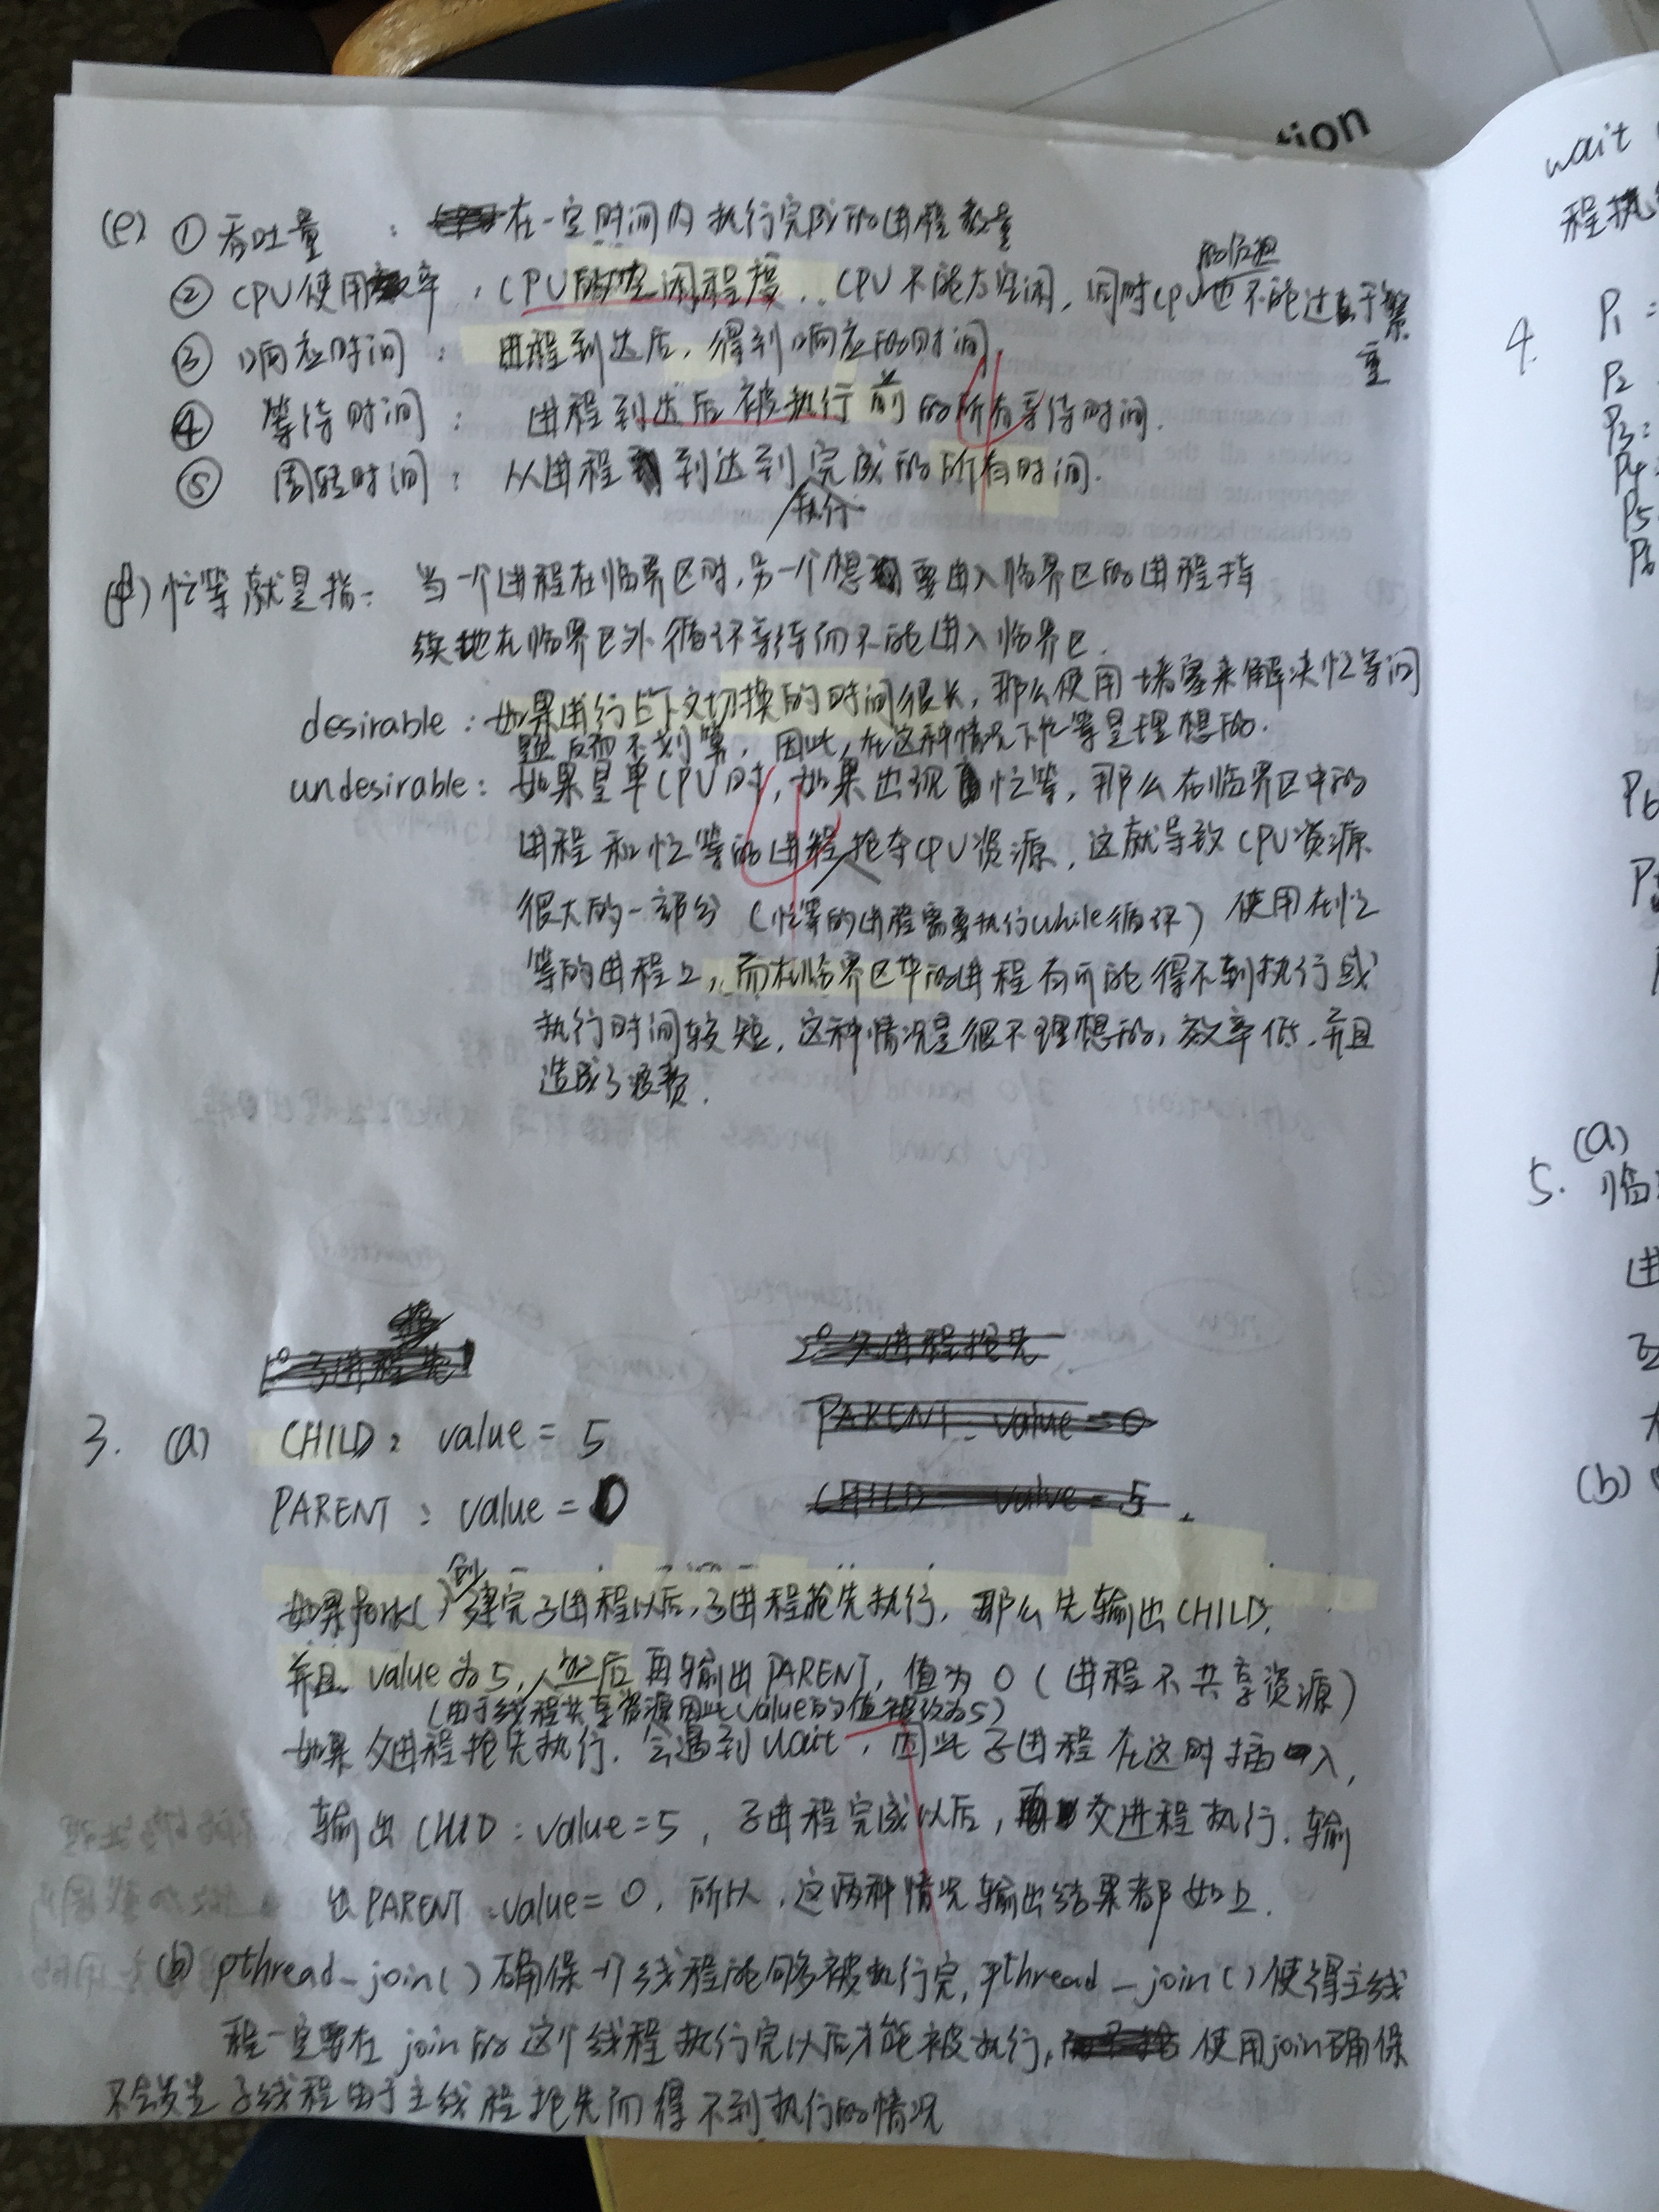 tion
(e) ① 吞吐量 : 在一定时间内执行完成的进程数量
的负担
② CPU使用率 : CPU的空闲程度. CPU不能太空闲, 同时CPU也不能过于繁
重
③ 响应时间 : 进程到达后, 得到响应的时间.
④ 等待时间 : 进程到达后被执行前的所有等待时间.
⑤ 周转时间 : 从进程到达到执行完成的所有时间.
(f) 忙等就是指: 当一个进程在临界区时, 另一个想要进入临界区的进程持
续地在临界区外循环等待而不能进入临界区.
desirable : 如果进行上下文切换的时间很长, 那么使用堵塞来解决忙等问
题反而不划算, 因此, 在这种情况下忙等是理想的.
undesirable : 如果是单CPU时, 如果出现忙等, 那么在临界区中的
进程和忙等的进程抢夺CPU资源, 这就导致CPU资源
很大的一部分 (忙等的进程需要执行while循环) 使用在忙
等的进程上, 而在临界区中的进程有可能得不到执行或
执行时间较短, 这种情况是很不理想的, 效率低, 并且
造成了浪费.
3. (a) CHILD : value = 5
PARENT : value = 0
如果fork()创建完子进程以后, 子进程抢先执行, 那么先输出CHILD,
并且 value 为5, 之后再输出PARENT, 值为 0 (进程不共享资源)
(由于线程共享资源因此value的值被改为5)
如果父进程抢先执行, 会遇到wait, 因此子进程在这时插入,
输出 CHILD : value = 5, 子进程完成以后, 父进程执行, 输
出 PARENT : value = 0, 所以, 这两种情况输出结果都如上.
(b) pthread_join() 确保一个线程能够被执行完, pthread_join() 使得主线
程一定要在 join 的这个线程执行完以后才能被执行, 使用join确保
不会发生子线程由于主线程抢先而得不到执行的情况
wait
程执
4. P1 =
P2
P3:
P4
P5
P6
P6
5. (a)
临
进
(b)